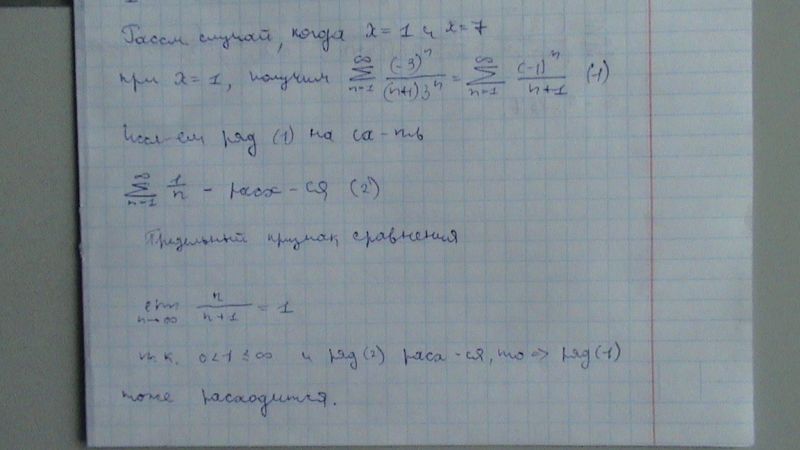 Рассм. случай, когда x = 1 и x = 7
при x = 1, получим ∑_{n=1}^{∞} (-3)^n / ((n+1)3^n) = ∑_{n=1}^{∞} (-1)^n / (n+1) (1)
ряд (1) на сх-ть
∑_{n=1}^{∞} 1/n - расх-ся, (2)
Предельный признак сравнения
lim_{n→∞} n/(n+1) = 1
т.к. 0<1≤∞ и ряд (2) расх-ся, то => ряд (1)
тоже расходится.